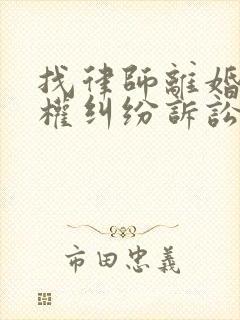 找律師離婚
權纠纷訴訟
市田忠義